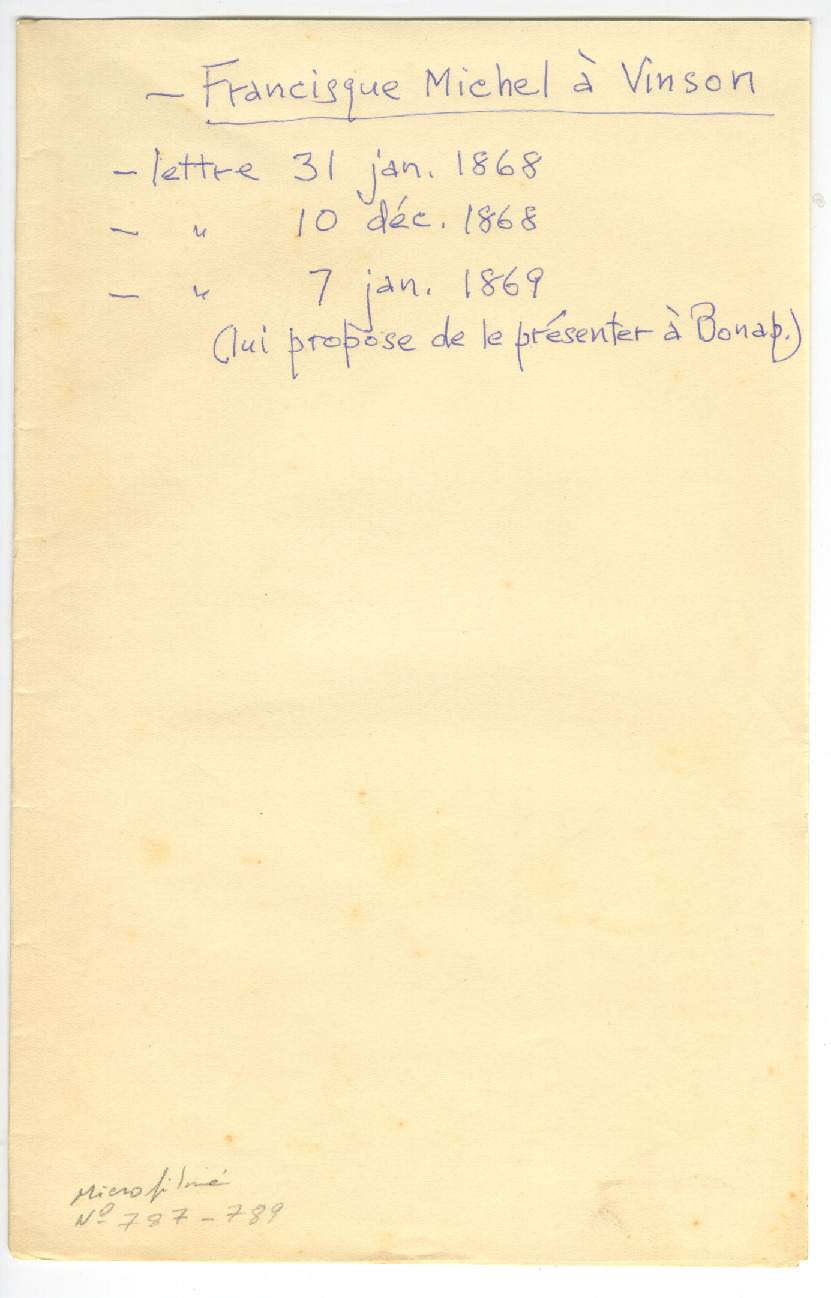 — Francisque Michel à Vinson
— lettre 31 jan. 1868
— " 10 déc. 1868
— " 7 jan. 1869
(lui propose de le présenter à Bonap.)
Microfilmé
Nº 787-789